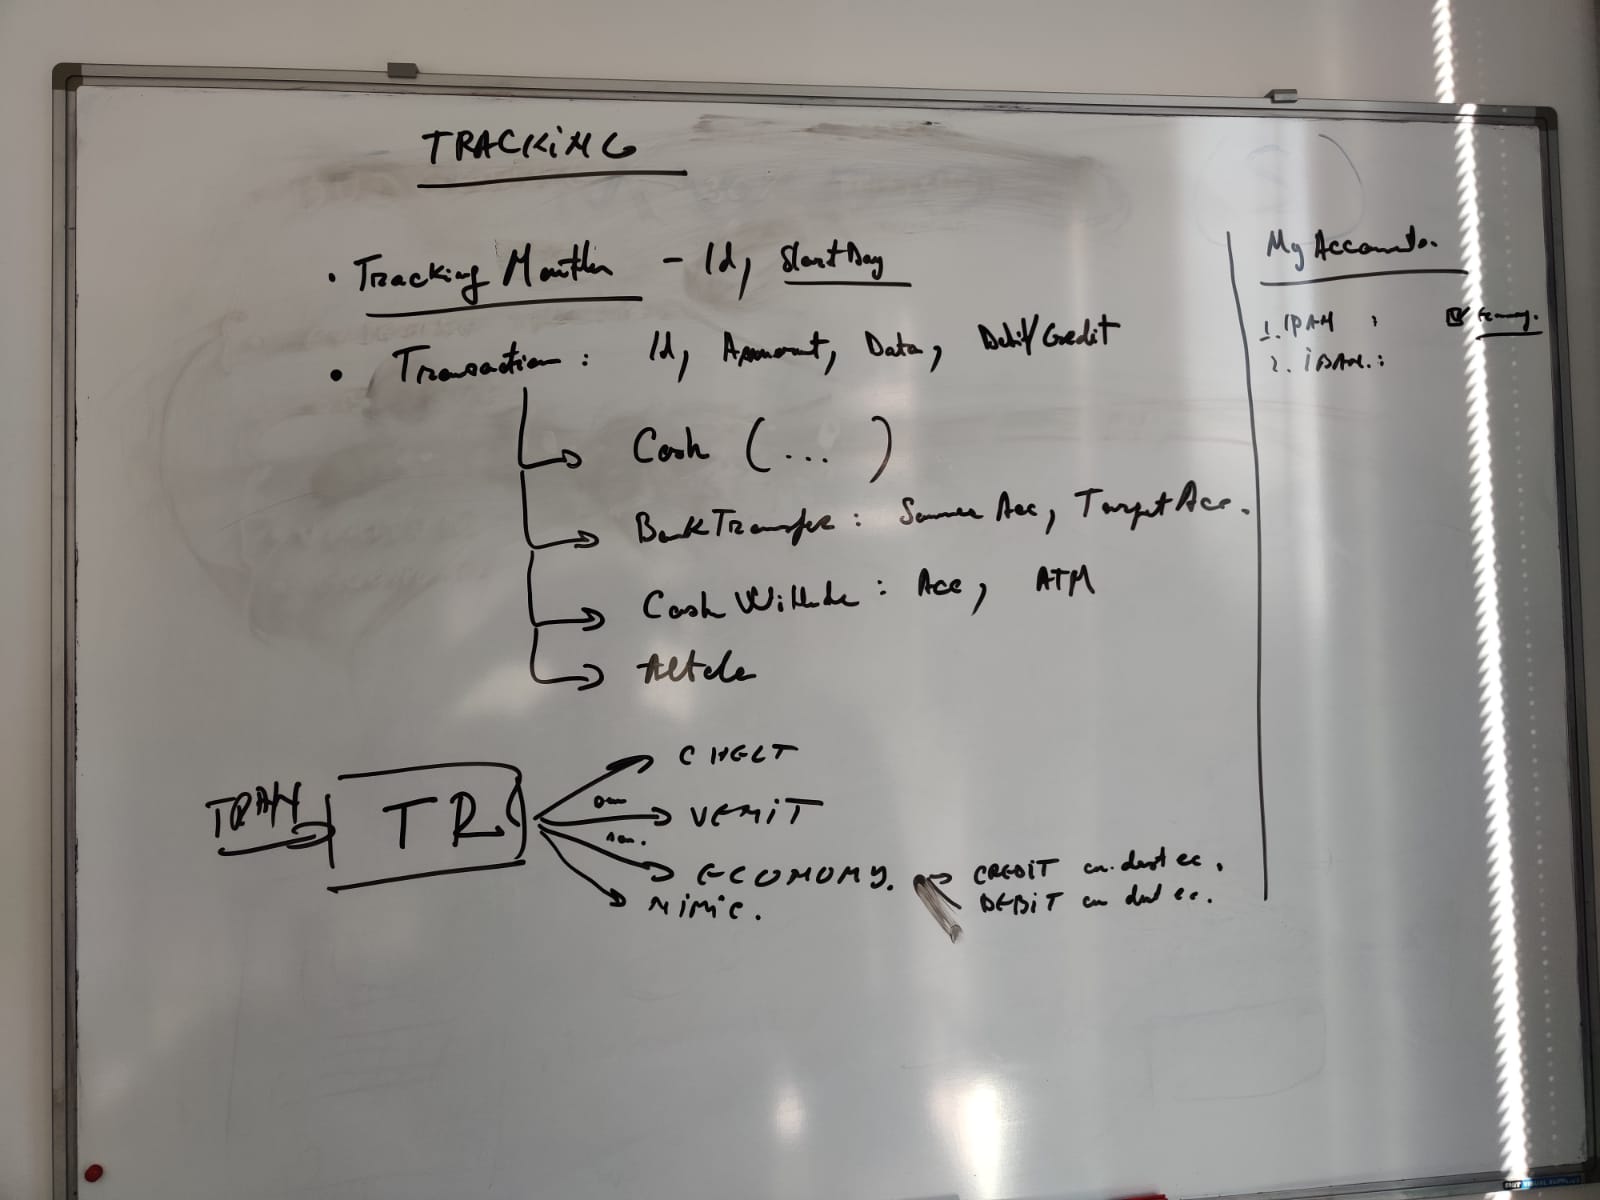 TRACKING
• Tracking Month - Id, StartDay
• Transaction : Id, Amount, Data, Debit/Credit
Cash (... )
BankTransfer : Source Acc, Target Acc.
Cash : Acc, ATM
Altele
TRAN TR
CHELT
VENIT
ECONOMY. CREDIT
DEBIT
NIMIC.
My Accounts.
1. IBAN : Economy.
2. IBAN. :